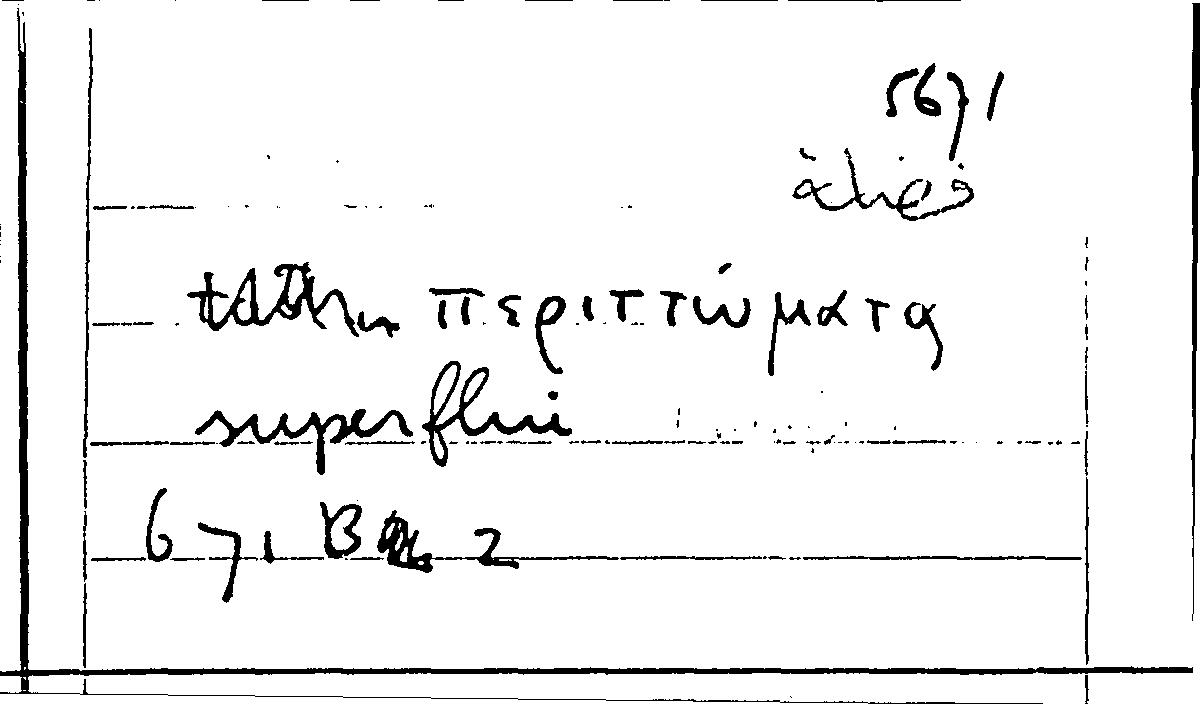 5671
περιττώματα
superflui
671 B 2